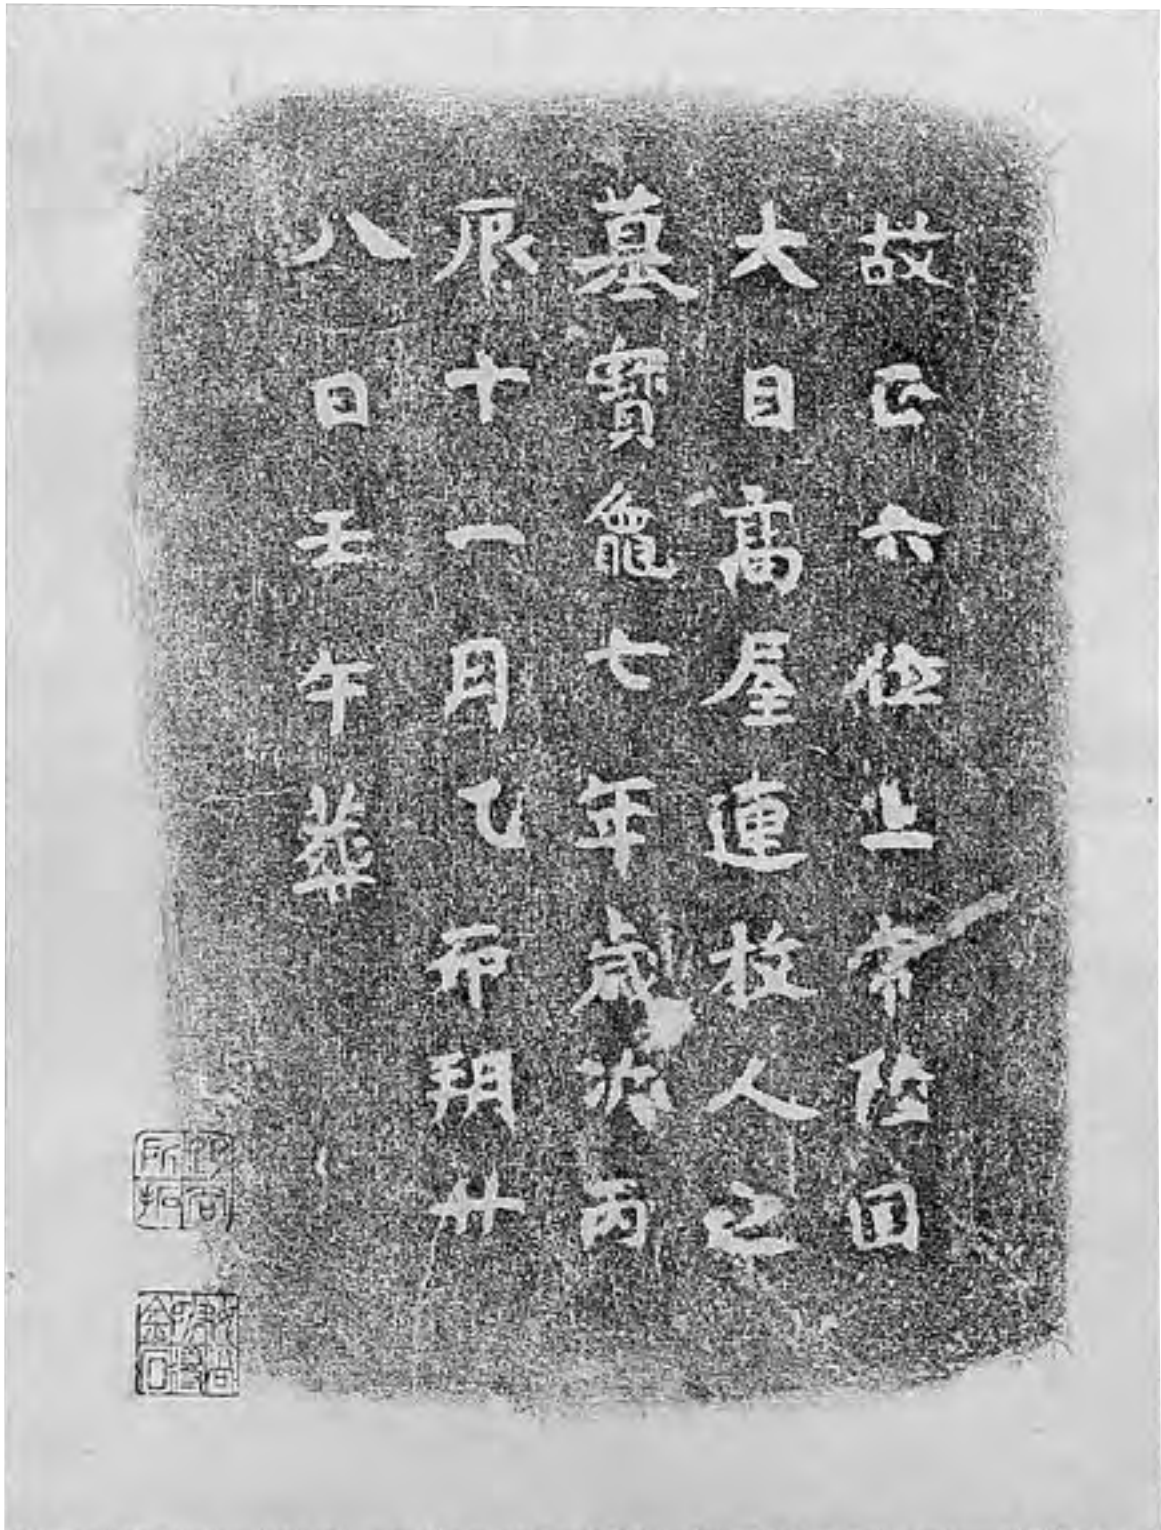 故正六位上常陸国
大目高屋連枚人之
墓寶龜七年歳次丙
辰十一月乙卯朔廿
八日壬午葬